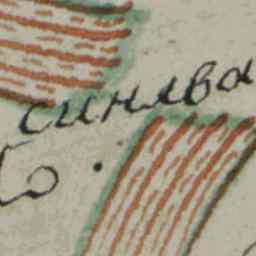 синява